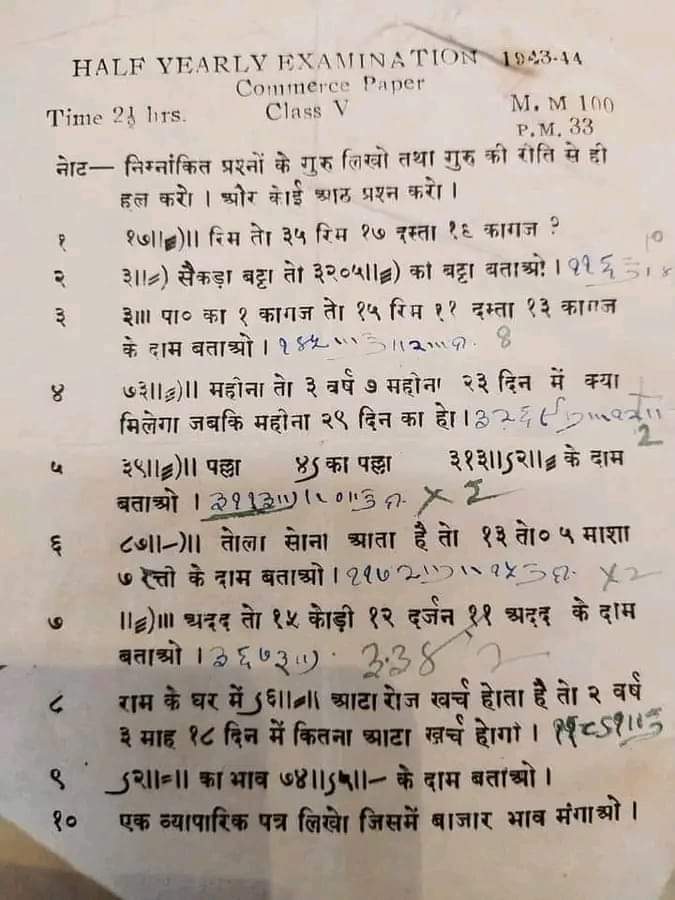 HALF YEARLY EXAMINATION 1943-44
Commerce Paper
Time 2½ hrs. Class V M. M 100
P.M. 33
नोट— निम्नांकित प्रश्नों के गुरु लिखो तथा गुरु की रीति से ही
हल करो । और कोई आठ प्रश्न करो ।
१ १७॥≡)॥ रिम तो ३५ रिम १७ दस्ता १६ कागज ?
२ ३॥=) सैकड़ा बट्टा तो ३२०५॥≡) का बट्टा बताओ ।
३ ३॥। पा० का १ कागज तो १५ रिम ११ दस्ता १३ कागज
के दाम बताओ । 8
४ ७३॥≡)॥ महीना तो ३ वर्ष ७ महीना २३ दिन में क्या
मिलेगा जबकि महीना २९ दिन का हो ।
2
५ ३९॥≡)॥ पल्ला ४ऽ का पल्ला ३१३॥ऽ२॥≡ के दाम
बताओ । × 2
६ ८७॥-)॥ तोला सोना आता है तो १३ तो० ५ माशा
७ रत्ती के दाम बताओ । ×2
७ ॥≡)॥। अदद तो १५ कोड़ी १२ दर्जन ११ अदद के दाम
बताओ ।
८ राम के घर में ऽ६॥≡॥ आटा रोज खर्च होता है तो २ वर्ष
३ माह १८ दिन में कितना आटा खर्च होगा ।
९ ऽ२॥=॥ का भाव ७४॥ऽ५॥- के दाम बताओ ।
१० एक व्यापारिक पत्र लिखो जिसमें बाजार भाव मंगाओ ।